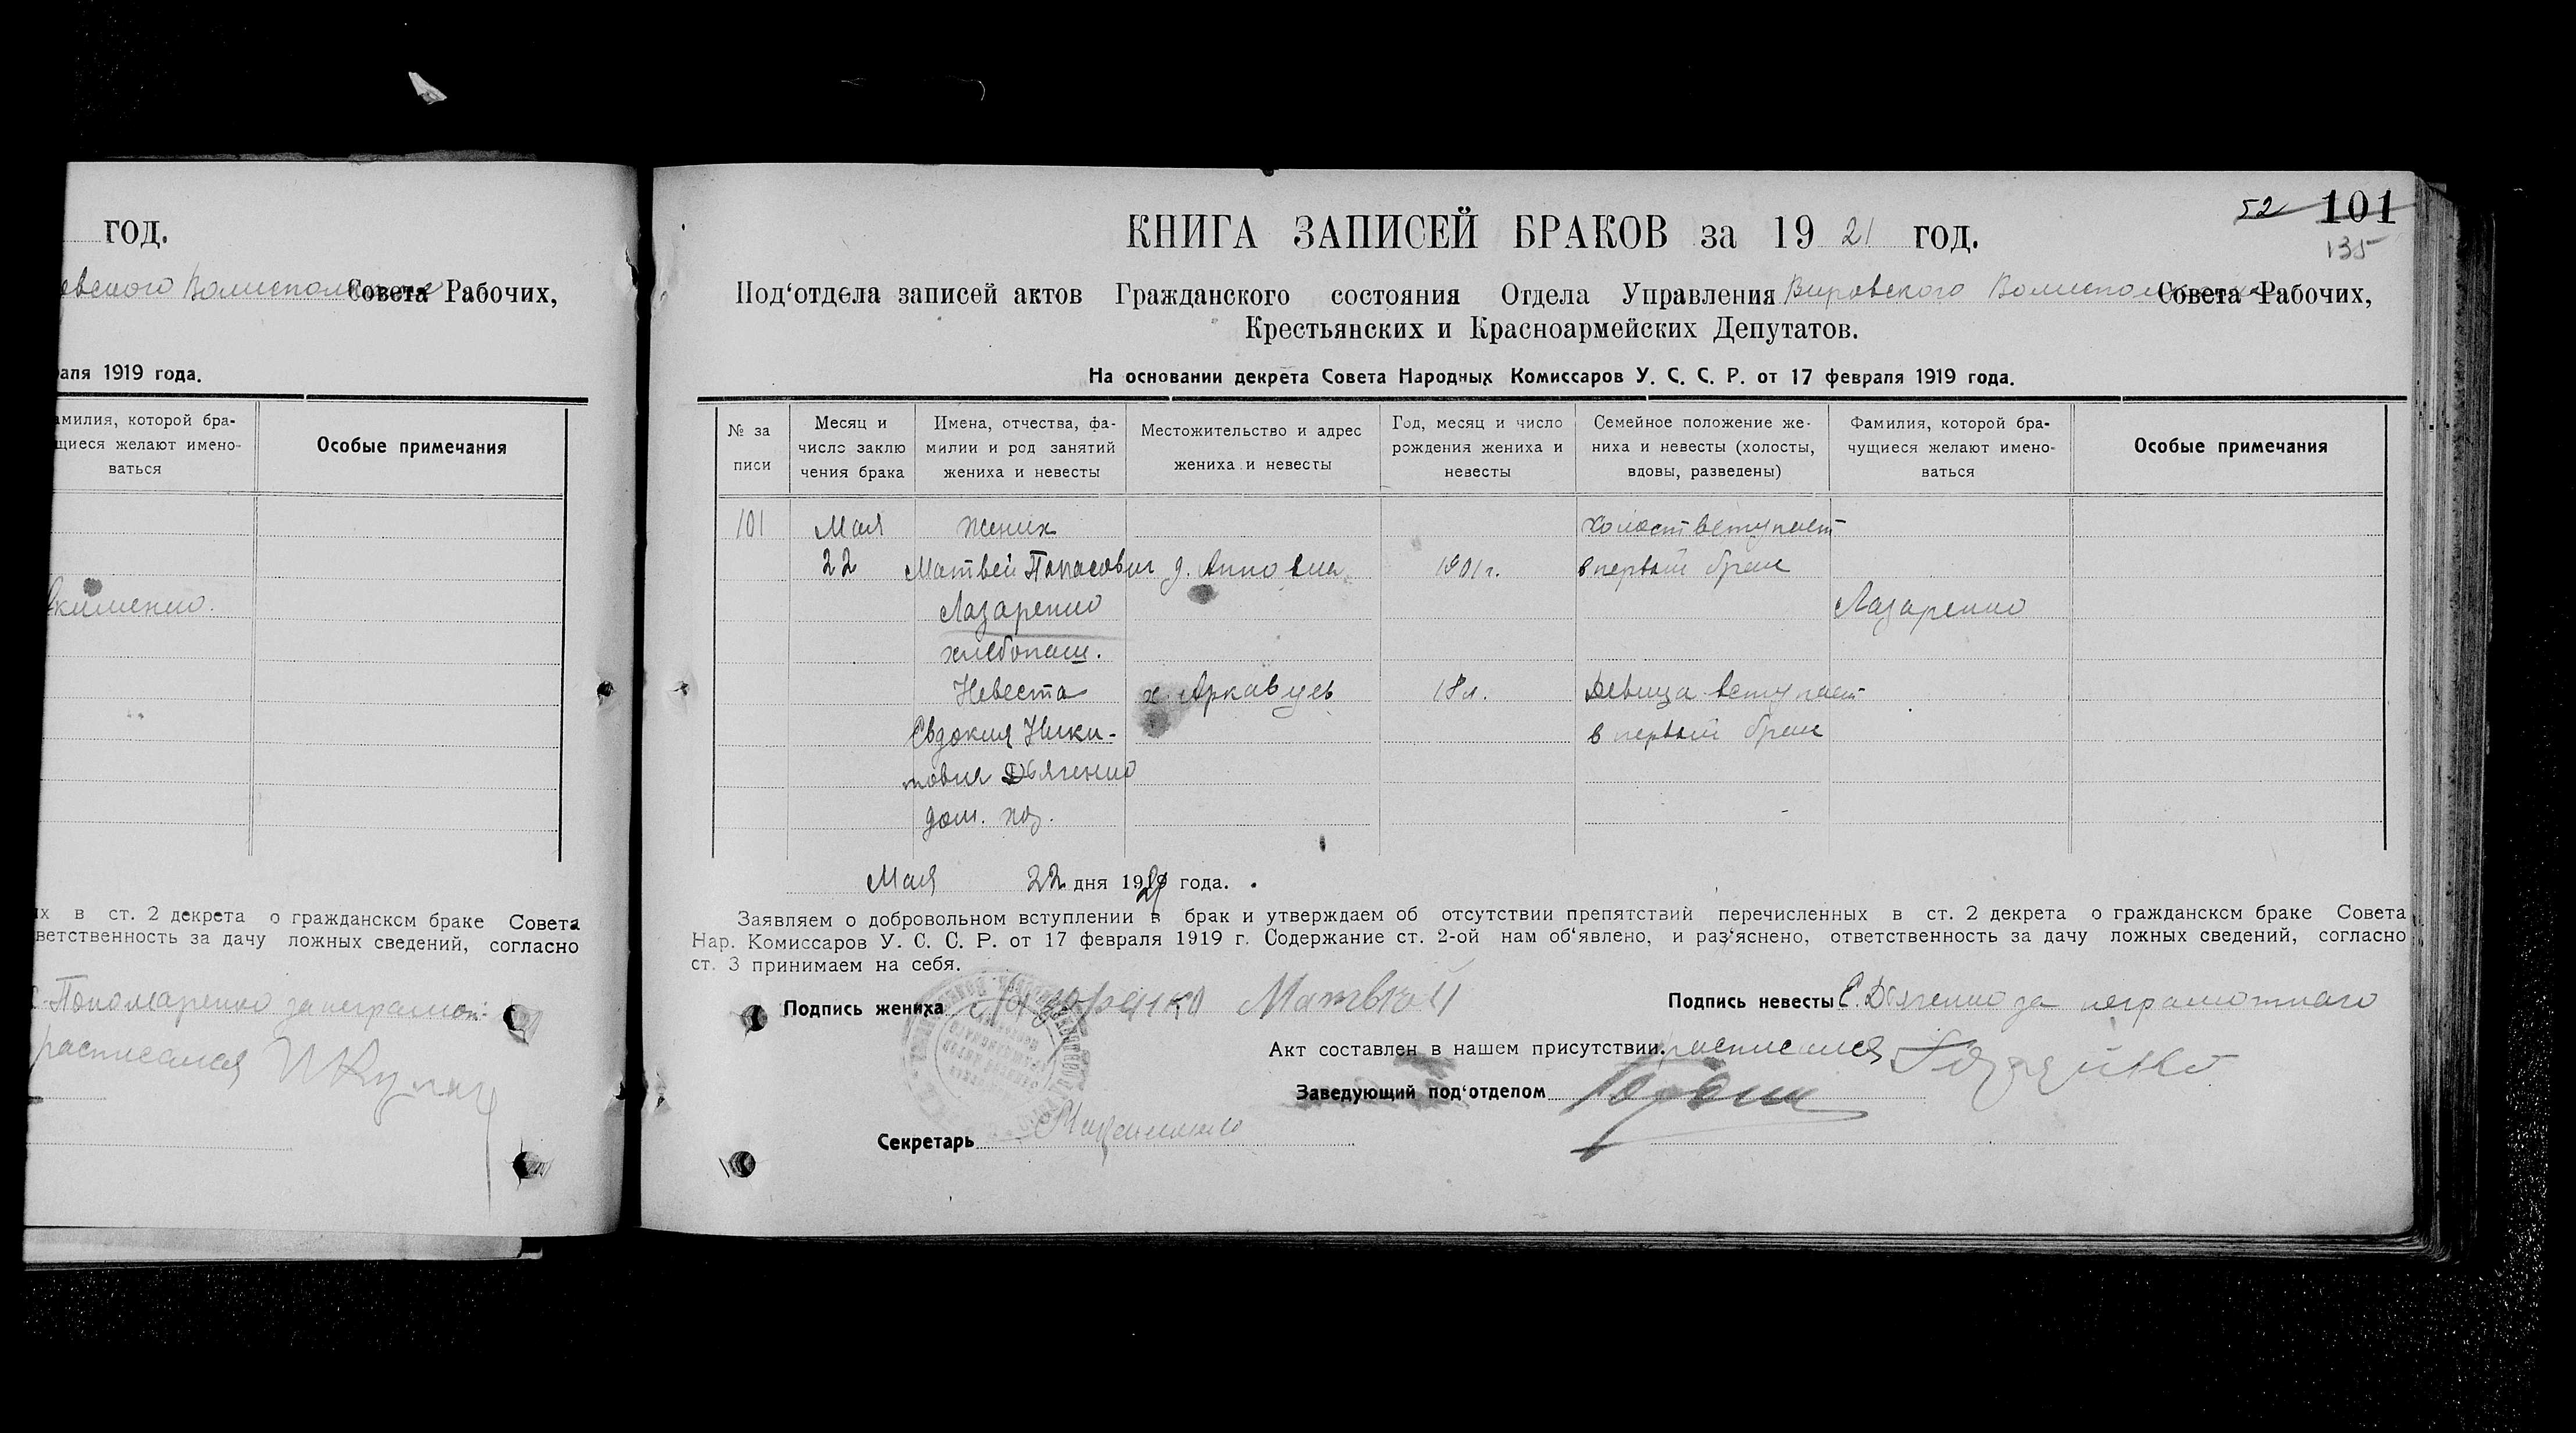 год.
Совета Рабочих,
1919 года.
которой бра-
щиеся желают имено-
ваться
Особые примечания
в ст. 2 декрета о гражданском браке Совета
ответственность за дачу ложных сведений, согласно
Пономаренко за неграмот.
расписался
52 101
135
КНИГА ЗАПИСЕЙ БРАКОВ за 1921 год.
Под'отдела записей актов Гражданского состояния Отдела Управления Вировского Волисполкома Совета Рабочих,
Крестьянских и Красноармейских Депутатов.
На основании декрета Совета Народных Комиссаров У. С. С. Р. от 17 февраля 1919 года.
№ за
писи
Месяц и
число заклю
чения брака
Имена, отчества, фа-
милии и род занятий
жениха и невесты
Местожительство и адрес
жениха и невесты
Год, месяц и число
рождения жениха и
невесты
Семейное положение же-
ниха и невесты (холосты,
вдовы, разведены)
Фамилия, которой бра-
чущиеся желают имено-
ваться
Особые примечания
101 Мая жених холост вступает
22 Матвей Панасович д. 1901 г. в первый брак
Лазаренко Лазаренко
хлебопаш.
Невеста х. 18 л. Девица вступает
Евдокия Ники- в первый брак
товна Дьяченко
дом. хоз.
Мая 22 дня 1921 года.
Заявляем о добровольном вступлении в брак и утверждаем об отсутствии препятствий перечисленных в ст. 2 декрета о гражданском браке Совета
Нар. Комиссаров У. С. С. Р. от 17 февраля 1919 г. Содержание ст. 2-ой нам об'явлено, и раз'яснено, ответственность за дачу ложных сведений, согласно
ст. 3 принимаем на себя.
Подпись жениха Лазаренко Матвей Подпись невесты Е. Дьяченко за неграмотнаго
Акт составлен в нашем присутствии. расписался
Заведующий под'отделом
Секретарь